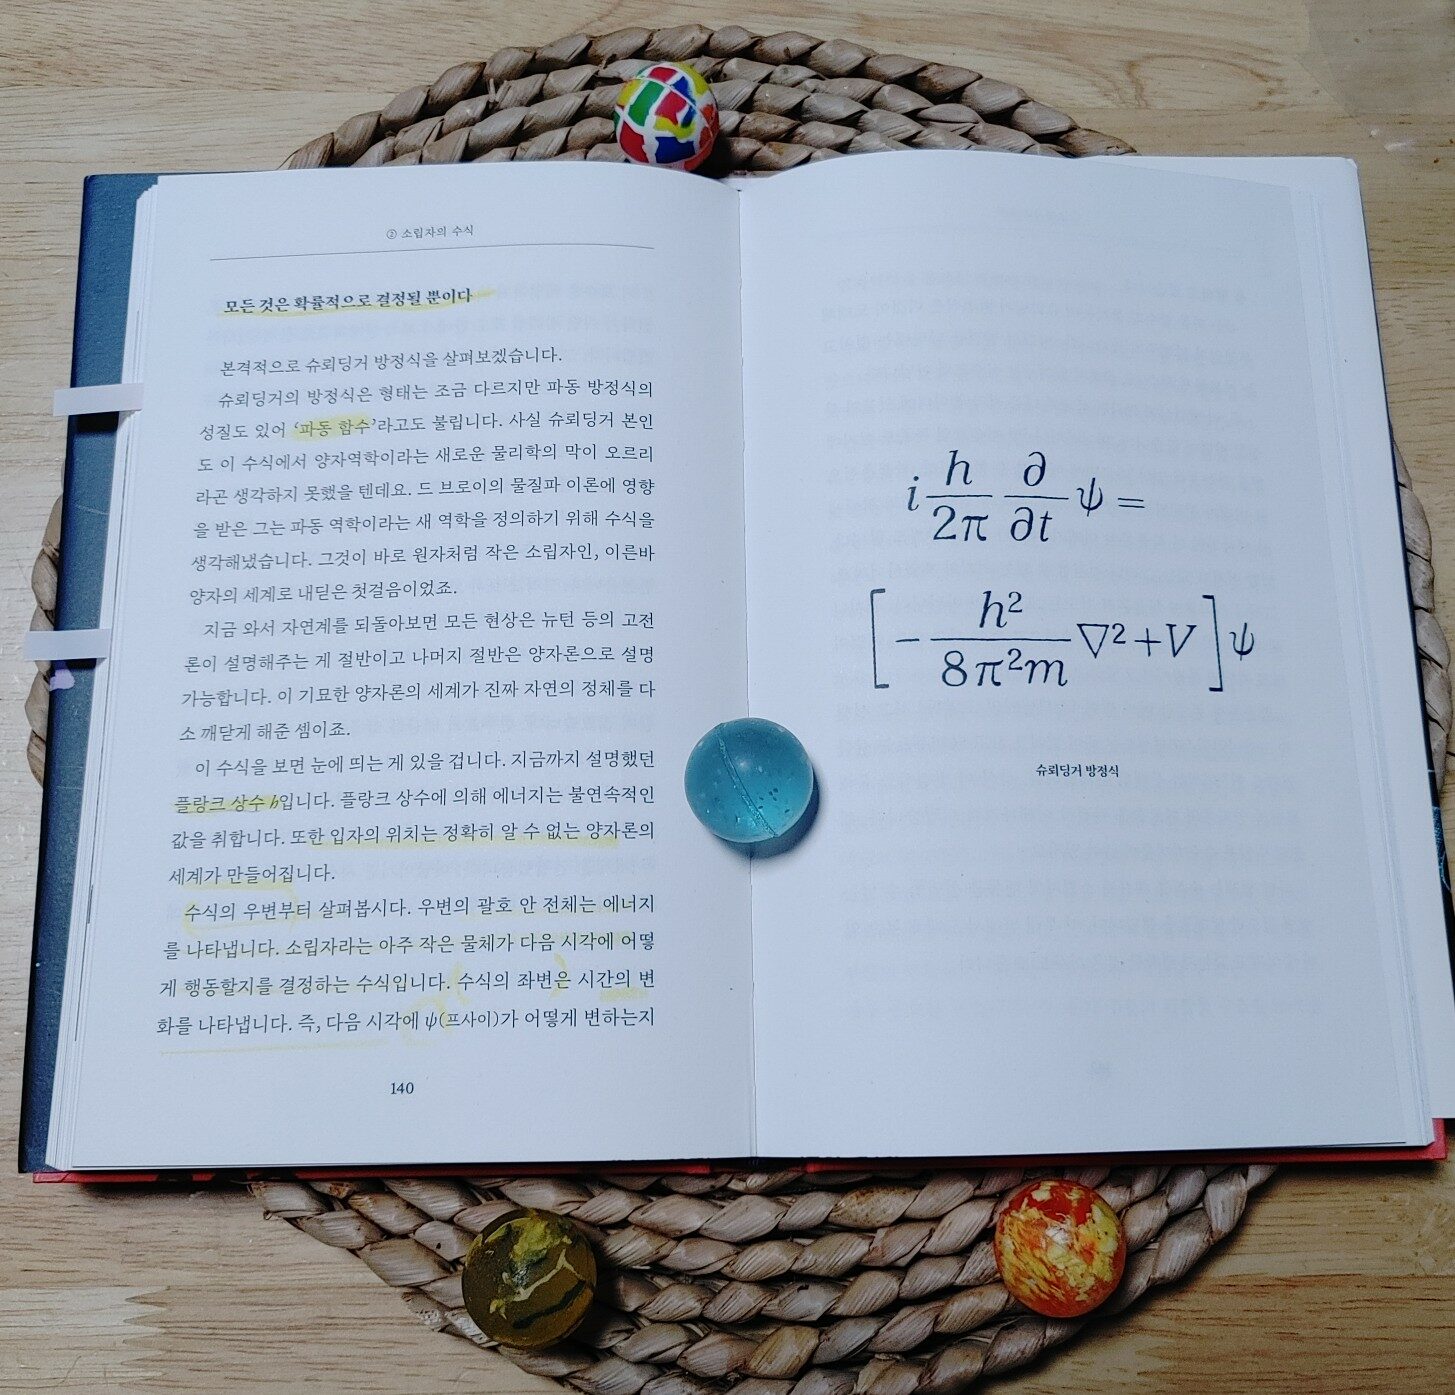 ② 소립자의 수식
모든 것은 확률적으로 결정될 뿐이다
본격적으로 슈뢰딩거 방정식을 살펴보겠습니다.
슈뢰딩거의 방정식은 형태는 조금 다르지만 파동 방정식의
성질도 있어 ‘파동 함수’라고도 불립니다. 사실 슈뢰딩거 본인
도 이 수식에서 양자역학이라는 새로운 물리학의 막이 오르리
라곤 생각하지 못했을 텐데요. 드 브로이의 물질파 이론에 영향
을 받은 그는 파동 역학이라는 새 역학을 정의하기 위해 수식을
생각해냈습니다. 그것이 바로 원자처럼 작은 소립자인, 이른바
양자의 세계로 내딛은 첫걸음이었죠.
지금 와서 자연계를 되돌아보면 모든 현상은 뉴턴 등의 고전
론이 설명해주는 게 절반이고 나머지 절반은 양자론으로 설명
가능합니다. 이 기묘한 양자론의 세계가 진짜 자연의 정체를 다
소 깨닫게 해준 셈이죠.
이 수식을 보면 눈에 띄는 게 있을 겁니다. 지금까지 설명했던
플랑크 상수 h입니다. 플랑크 상수에 의해 에너지는 불연속적인
값을 취합니다. 또한 입자의 위치는 정확히 알 수 없는 양자론의
세계가 만들어집니다.
수식의 우변부터 살펴봅시다. 우변의 괄호 안 전체는 에너지
를 나타냅니다. 소립자라는 아주 작은 물체가 다음 시각에 어떻
게 행동할지를 결정하는 수식입니다. 수식의 좌변은 시간의 변
화를 나타냅니다. 즉, 다음 시각에 ψ(프사이)가 어떻게 변하는지
140
i h/2π ∂/∂t ψ =
[ − h²/8π²m ∇² + V ] ψ
슈뢰딩거 방정식